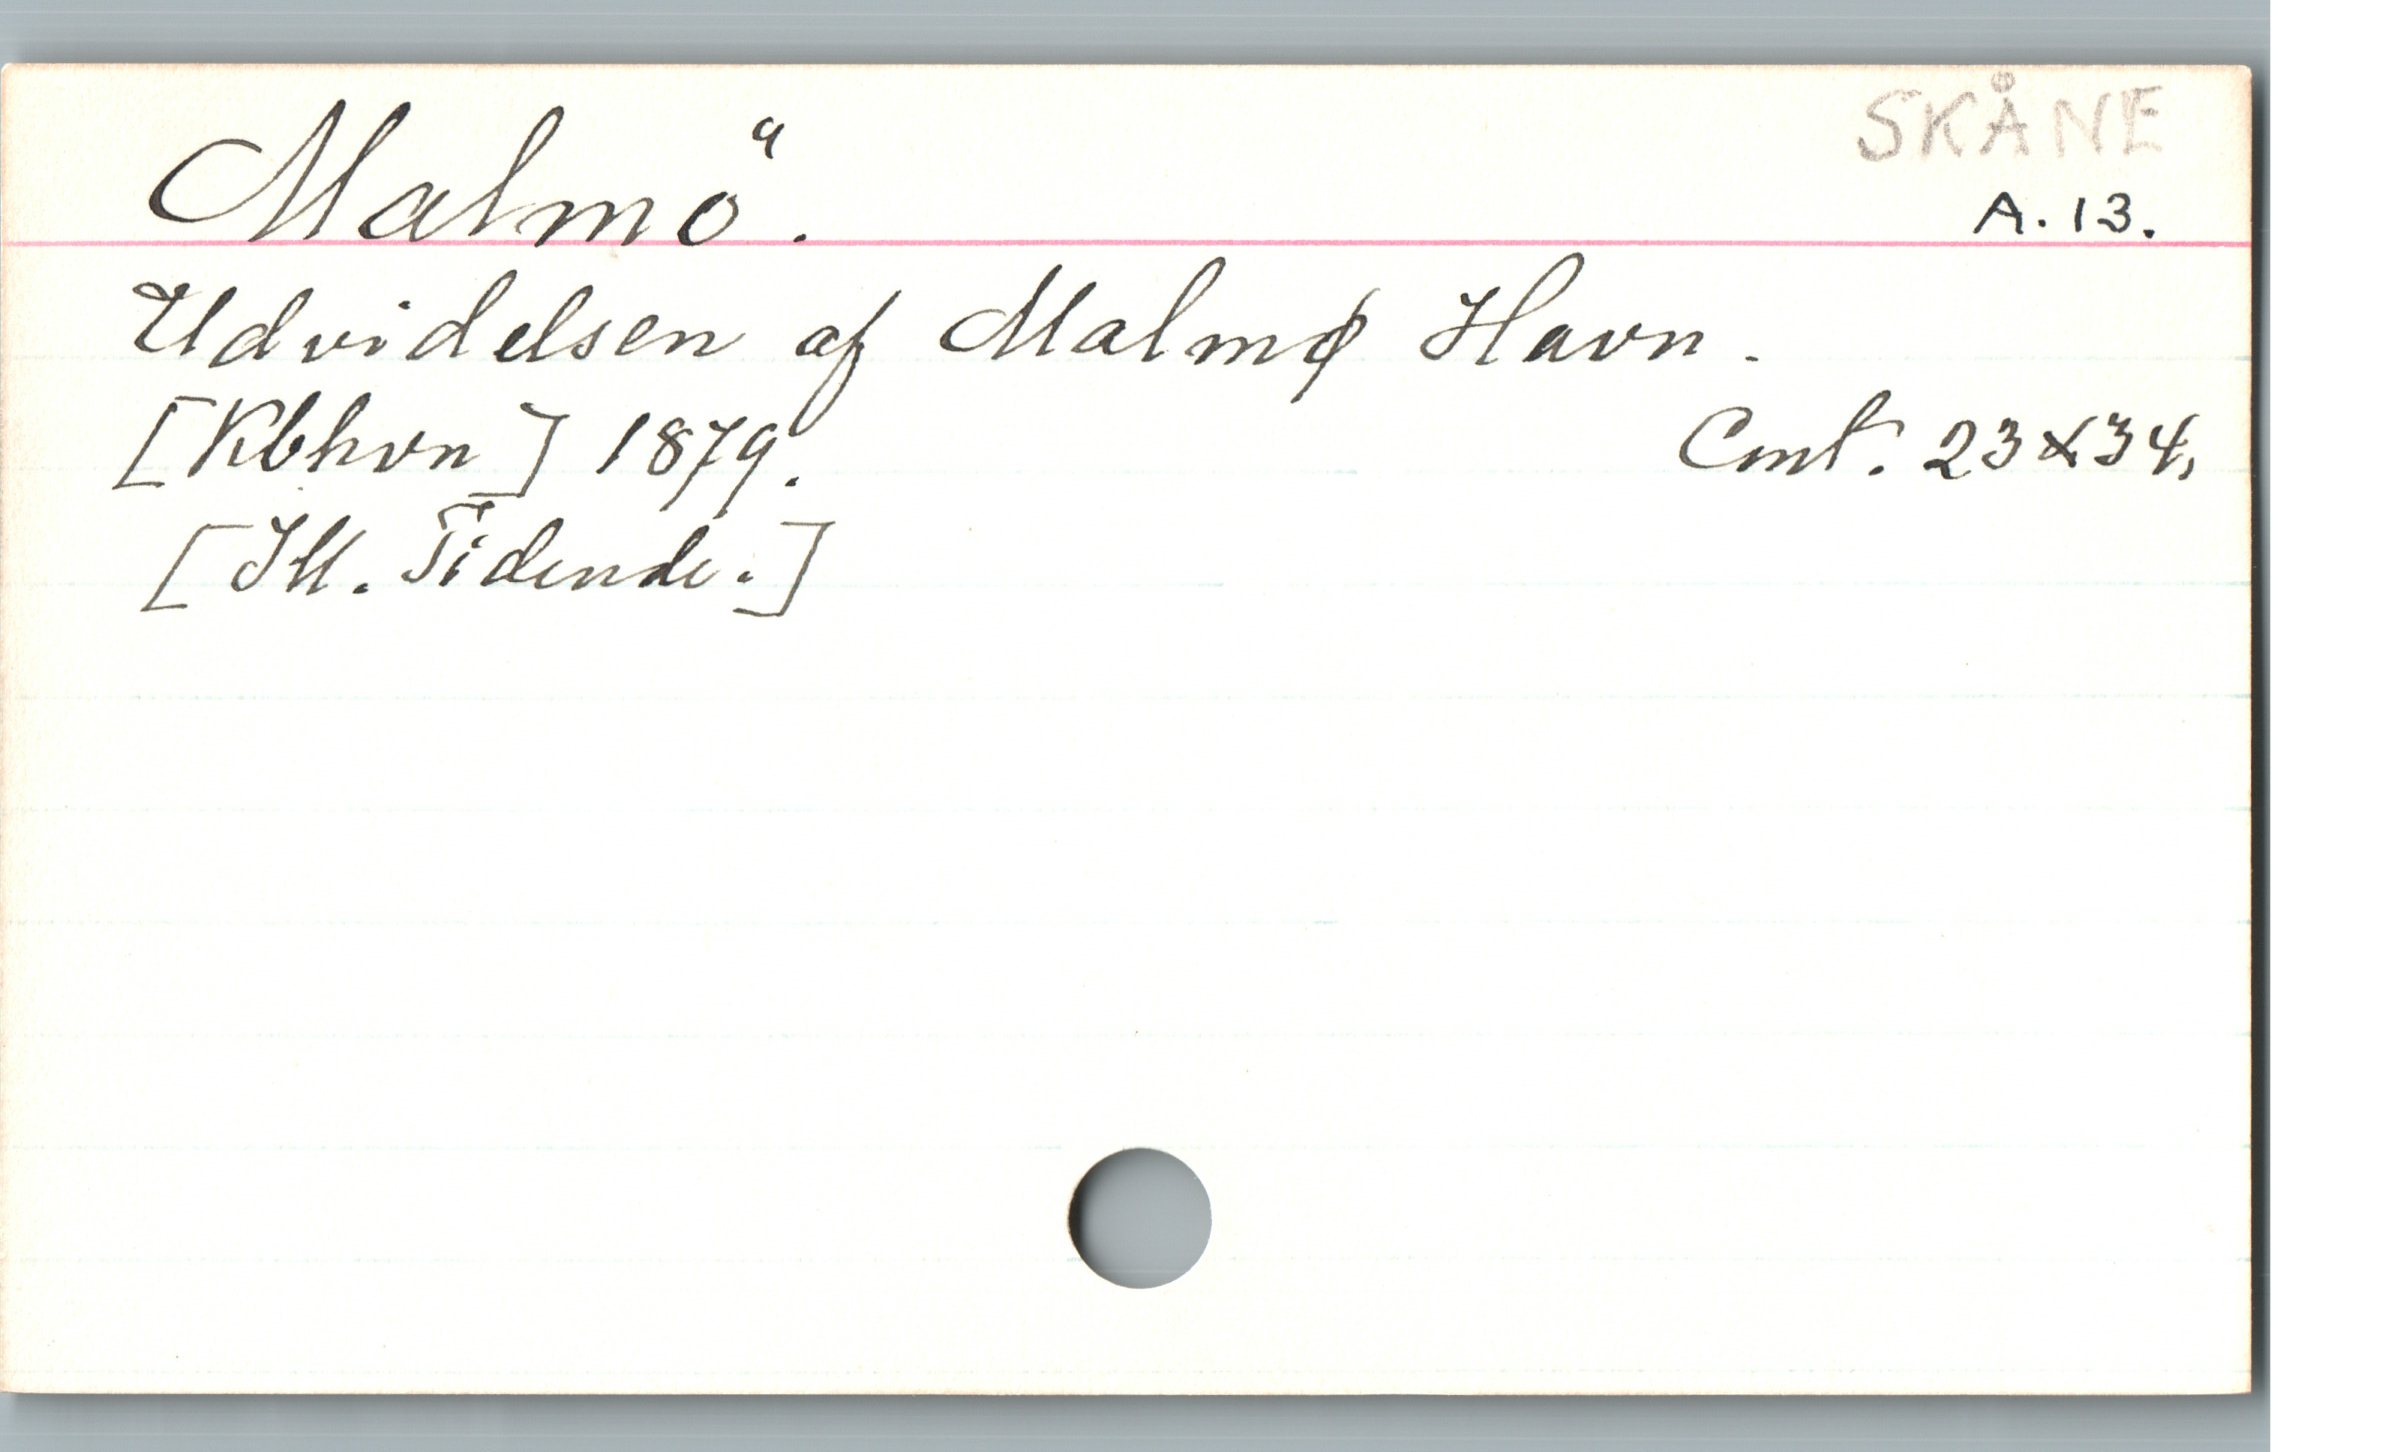 SKÅNE
Malmö.
A. 13.
Udvidelsen af Malmø Havn.
[Kbhvn] 1879. Cmt. 23x34.
[Ill. Tidende.]